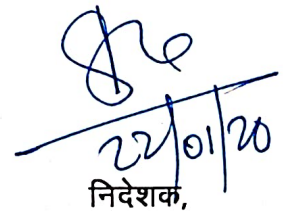 22/01/20
निदेशक,